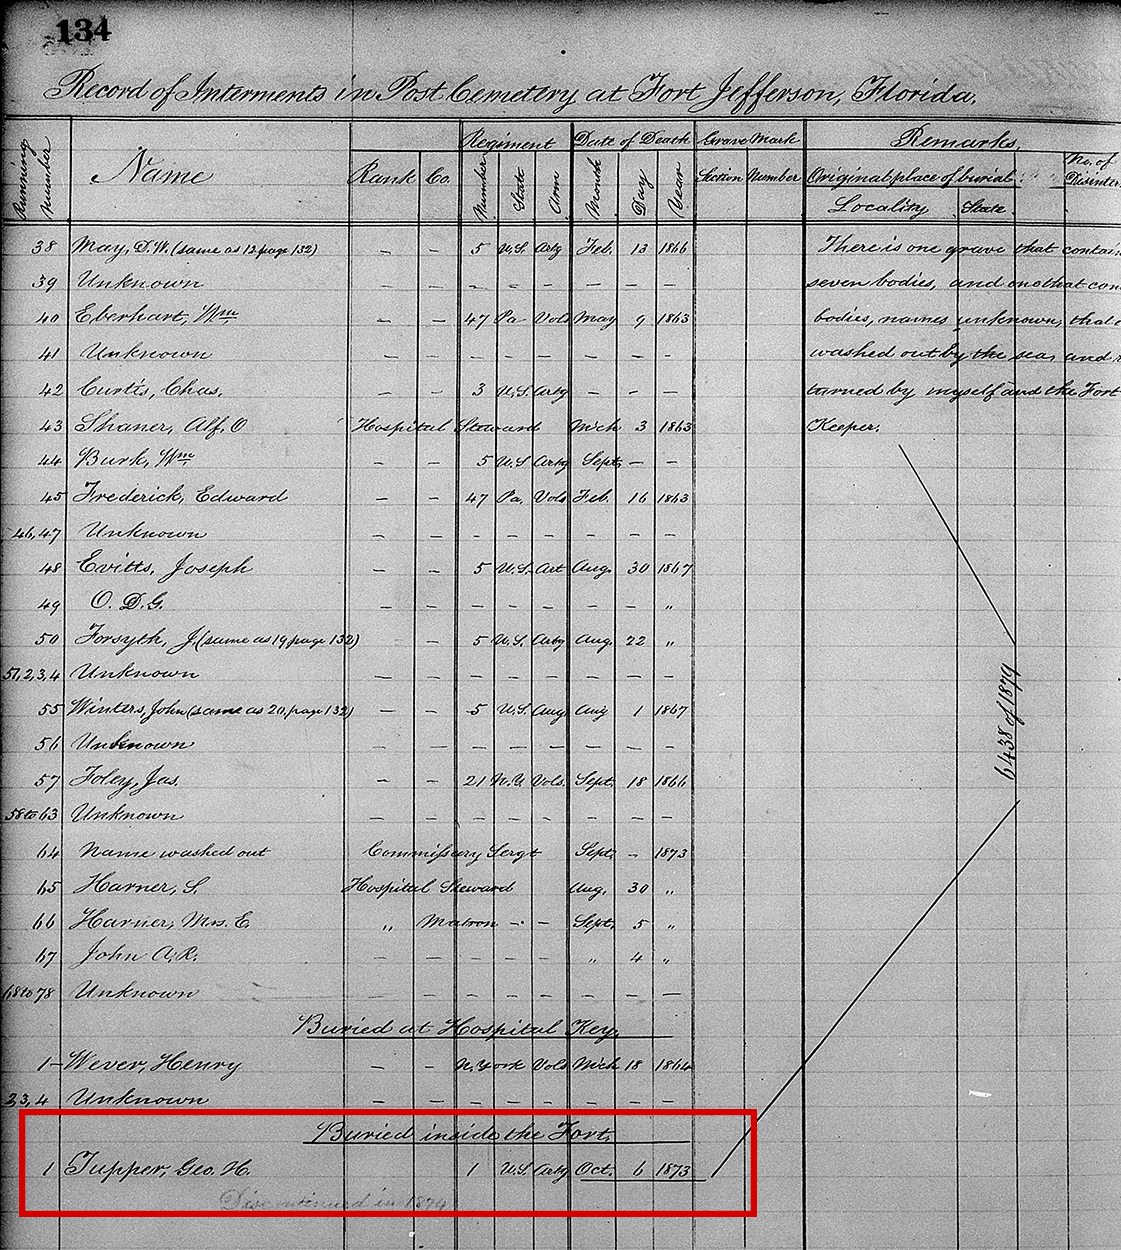 134
Record of Interments in Post Cemetery at Fort Jefferson, Florida.
Running Number Name Rank Co. Regiment Number State Arm Date of Death Month Day Year Grave Mark Section Number Remarks. Original place of burial Locality State No. of Disinter.
38 May, D.W. (same as 12 page 132) – – 5 U.S. Arty Feb. 13 1866 There is one grave that contain
39 Unknown – – – – – – – – seven bodies, and one that con
40 Eberhart, Wm – – 47 Pa Vols May 9 1863 bodies, names unknown, that
41 Unknown – – – – – – – – washed out by the sea, and
42 Curtis, Chas. – – 3 U.S. Arty – – – turned by myself and the Fort
43 Shaner, Alf. O Hospital Steward Mch 3 1863 Keeper.
44 Burk, Wm – – 5 U.S. Arty Sept. – –
45 Frederick, Edward – – 47 Pa. Vols Feb. 16 1863
46, 47 Unknown – – – – – – – –
48 Evitts, Joseph – – 5 U.S. Art Aug. 30 1867
49 O. D. G. – – – – – – – "
50 Forsyth, J. (same as 19, page 132) – 5 U.S. Arty Aug. 22 "
51,2,3,4 Unknown – – – – – – – –
55 Winters, John (same as 20, page 132) – 5 U.S. Aug Aug 1 1867
56 Unknown – – – – – – – –
57 Foley, Jas. – – 21 N.Y. Vols. Sept. 18 1866
58 to 63 Unknown – – – – – – – –
64 Name washed out Commissary Sergt Sept. – 1873
65 Harner, S. Hospital Steward Aug. 30 "
66 Harner, Mrs. E. " Matron – – Sept. 5 "
67 John A. R. – – – – – " 4 "
68 to 78 Unknown – – – – – – –
6438 of 1879
Buried at Hospital Key.
1 – Wever, Henry – – N. York Vols Mch 18 1864
2,3,4 Unknown – – – – – – – –
Buried inside the Fort.
1 Tupper, Geo. H. 1 U.S. Arty Oct. 6 1873
Discontinued in 1874